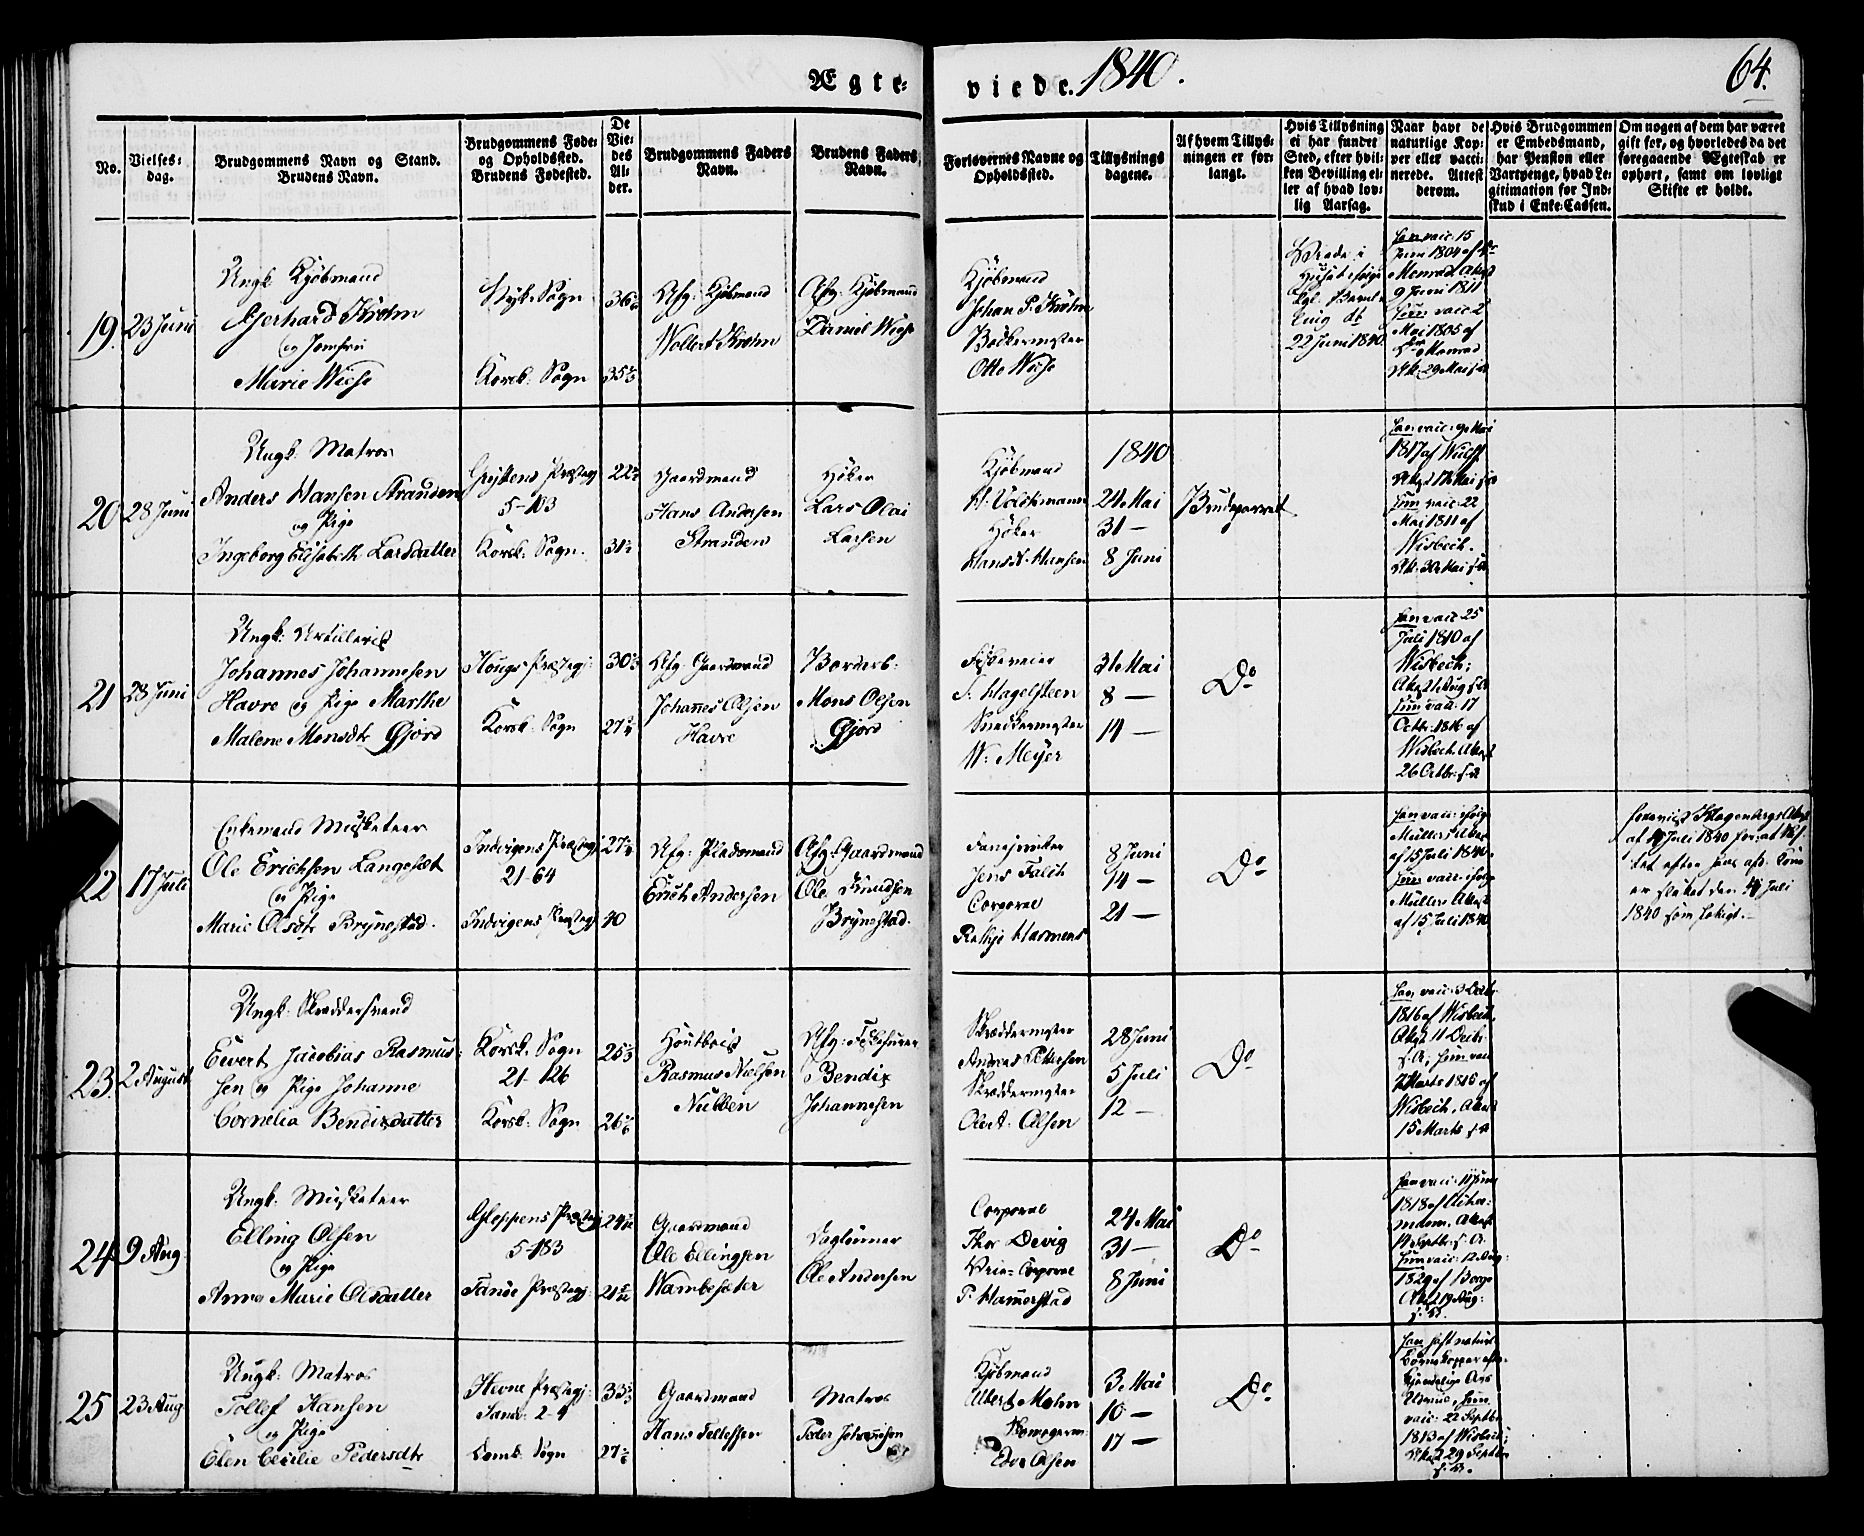 Ægte-
viede. 1840.
64.
No.
Vielses-
dag.
Brudgommens Navn og Stand.
Brudens Navn.
Brudgommens Føde-
og Opholdssted.
Brudens Fødested.
De
Vie-
des
Al-
der.
Brudgommens Faders
Navn.
Brudens Faders
Navn.
Forlovernes Navne og
Opholdssted.
Tillysnings
dagene.
Af hvem Tillys-
ningen er for-
langt.
Hvis Tillysning
ei har fundet
Sted, efter hvil-
ken Bevilling el-
ler af hvad lov-
lig Aarsag.
Naar havt de
naturlige Kop-
per eller vacci-
nerede. Attest
derom.
Hvis Brudgommen
er Embedsmand,
har Pension eller
Vartpenge, hvad Le-
gitimation for Ind-
skud i Enke-Cassen.
Om nogen af dem har været
gift før, og hvorledes da det
foregaaende Ægteskab er
ophørt, samt om lovligt
Skifte er holdt.
19. 23 Juni
Ungk. Kjøbmand
Gerhard Krohn
og Jomfru
Marie Wiese
Nyk. Sogn
Korsk. Sogn
Afg. Kjøbmand
Wollert Krohn
Afg. Kjøbmand
Daniel Wiese
Kjøbmand
Johan P. Krohn
Bæckermester
Otto Wiese
Viede i
Huset ifølge
kgl. Bevil-
ling dt
22 Juni 1840.
Han vacc. 15
Juni 1804 af Dr
Monrad Attest
9 Juni 1811
Hun vacc. 2
Mai 1805 af
Dr Monrad
Att. 29 Mai s. A.
20 28 Juni
Ungk. Matros
Anders Hansen Stranden
og Pige
Ingeborg Elisabeth Larsdatter
Gryttens Præstegj.
5-183
Korsk. Sogn.
Gaardmand
Hans Andersen
Stranden
Høker
Lars Olai
Larsen
Kjøbmand
H. Volckmann
Høker
Hans H. Hansen
1840
24 Mai
31 —
8 Juni
Brudeparret
Han vacc. 9 Mai
1817 af Wulff
Attest 17 Mai s. A.
Hun vacc. 22
Mai 1811 af
Wisbech.
Att. 30 Mai s. A.
21 28 Juni
Ungk. Artillerist
Johannes Johannesen
Havre og Pige Marthe
Malene Monsdtr Gjørd
Hougs Præstegj.
Korsk. Sogn
Afg. Gaardmand
Johannes Olsen
Havre
Borderb.
Mons Olsen
Gjørd
F. Hagelsteen
Snedkermester
W. Meyer
31 Mai
8 —
14 —
Do
Han vacc. 25
Juli 1810 af
Wisbech;
Attest 1 Aug. s. A.
Hun vacc. 17
Octbr. 1816 af
Wisbech. Attest
26 Octbr. s. A.
22 17 Juli
Enkemand Musketeer
Ole Erichsen Langesæt
og Pige
Marie Olsdtr Brynestad.
Indvigens Præstegj.
21-64
Indvigens Præstegj.
40
Afg. Pladsmand
Erich Andersen
Afg. Gaardmand
Ole Knudsen
Brynestad.
Jens Falch
Corporal
Rathje Harmens
8 Juni
14 —
21 —
Do
Han vacc. ifølge
Müllers Attest
af 15 Juli 1840.
Hun vacc. ifølge
Müllers Attest
af 15 Juli 1840
1840 som lovligt.
23. 2 August
Ungk. Skræddersvend
Eivert Jacobias Rasmus-
sen og Pige Johanne
Cornelia Bendixdatter
Korsk. Sogn
21-126
Korsk. Sogn
Houtboist
Rasmus Nielsen
Nübben
Afg. Fiskefører
Bendix
Johannesen
Skræddermester
Andreas Pettersen
Skræddermester
Olert. Olsen
28 Juni
5 Juli
12 —
Do
Han vacc. 3 Decbr.
1816 af Wisbech,
Attest 11 Decbr.
s. A; hun vacc.
7 Marts 1816 af
Wisbech, Attest
15 Marts s. A.
24 9 Aug.
Ungk. Musketeer
Elling Olsen
og Pige
Anna Marie Olsdatter
Gloppens Præstegj.
5-183
Fanøe Præstegj.
Gaardmand
Ole Ellingsen
Wambeseter
Dagleiner
Ole Andersen
Corporal
Thor Devig
Vice-Corporal
P. Hamerstad
24 Mai
31 —
8 Juni
Do
25 23 Aug.
Ungk. Matros
Tollef Hansen
og Pige
Elen Cecilie Pedersdtr
Hevne Præstegj.
Sandv. 2-4
Domk. Sogn
Gaardmand
Hans Tellefsen
Matros
Peder Johannesen
Kjøbmand
Albert Mohn
Edvr Olsen
3 Mai
10 —
17 —
Do
Han haft naturl.
vacc. 22 Septbr.
1813 af Wisbech;
Attest 29 Septbr.
s. A.